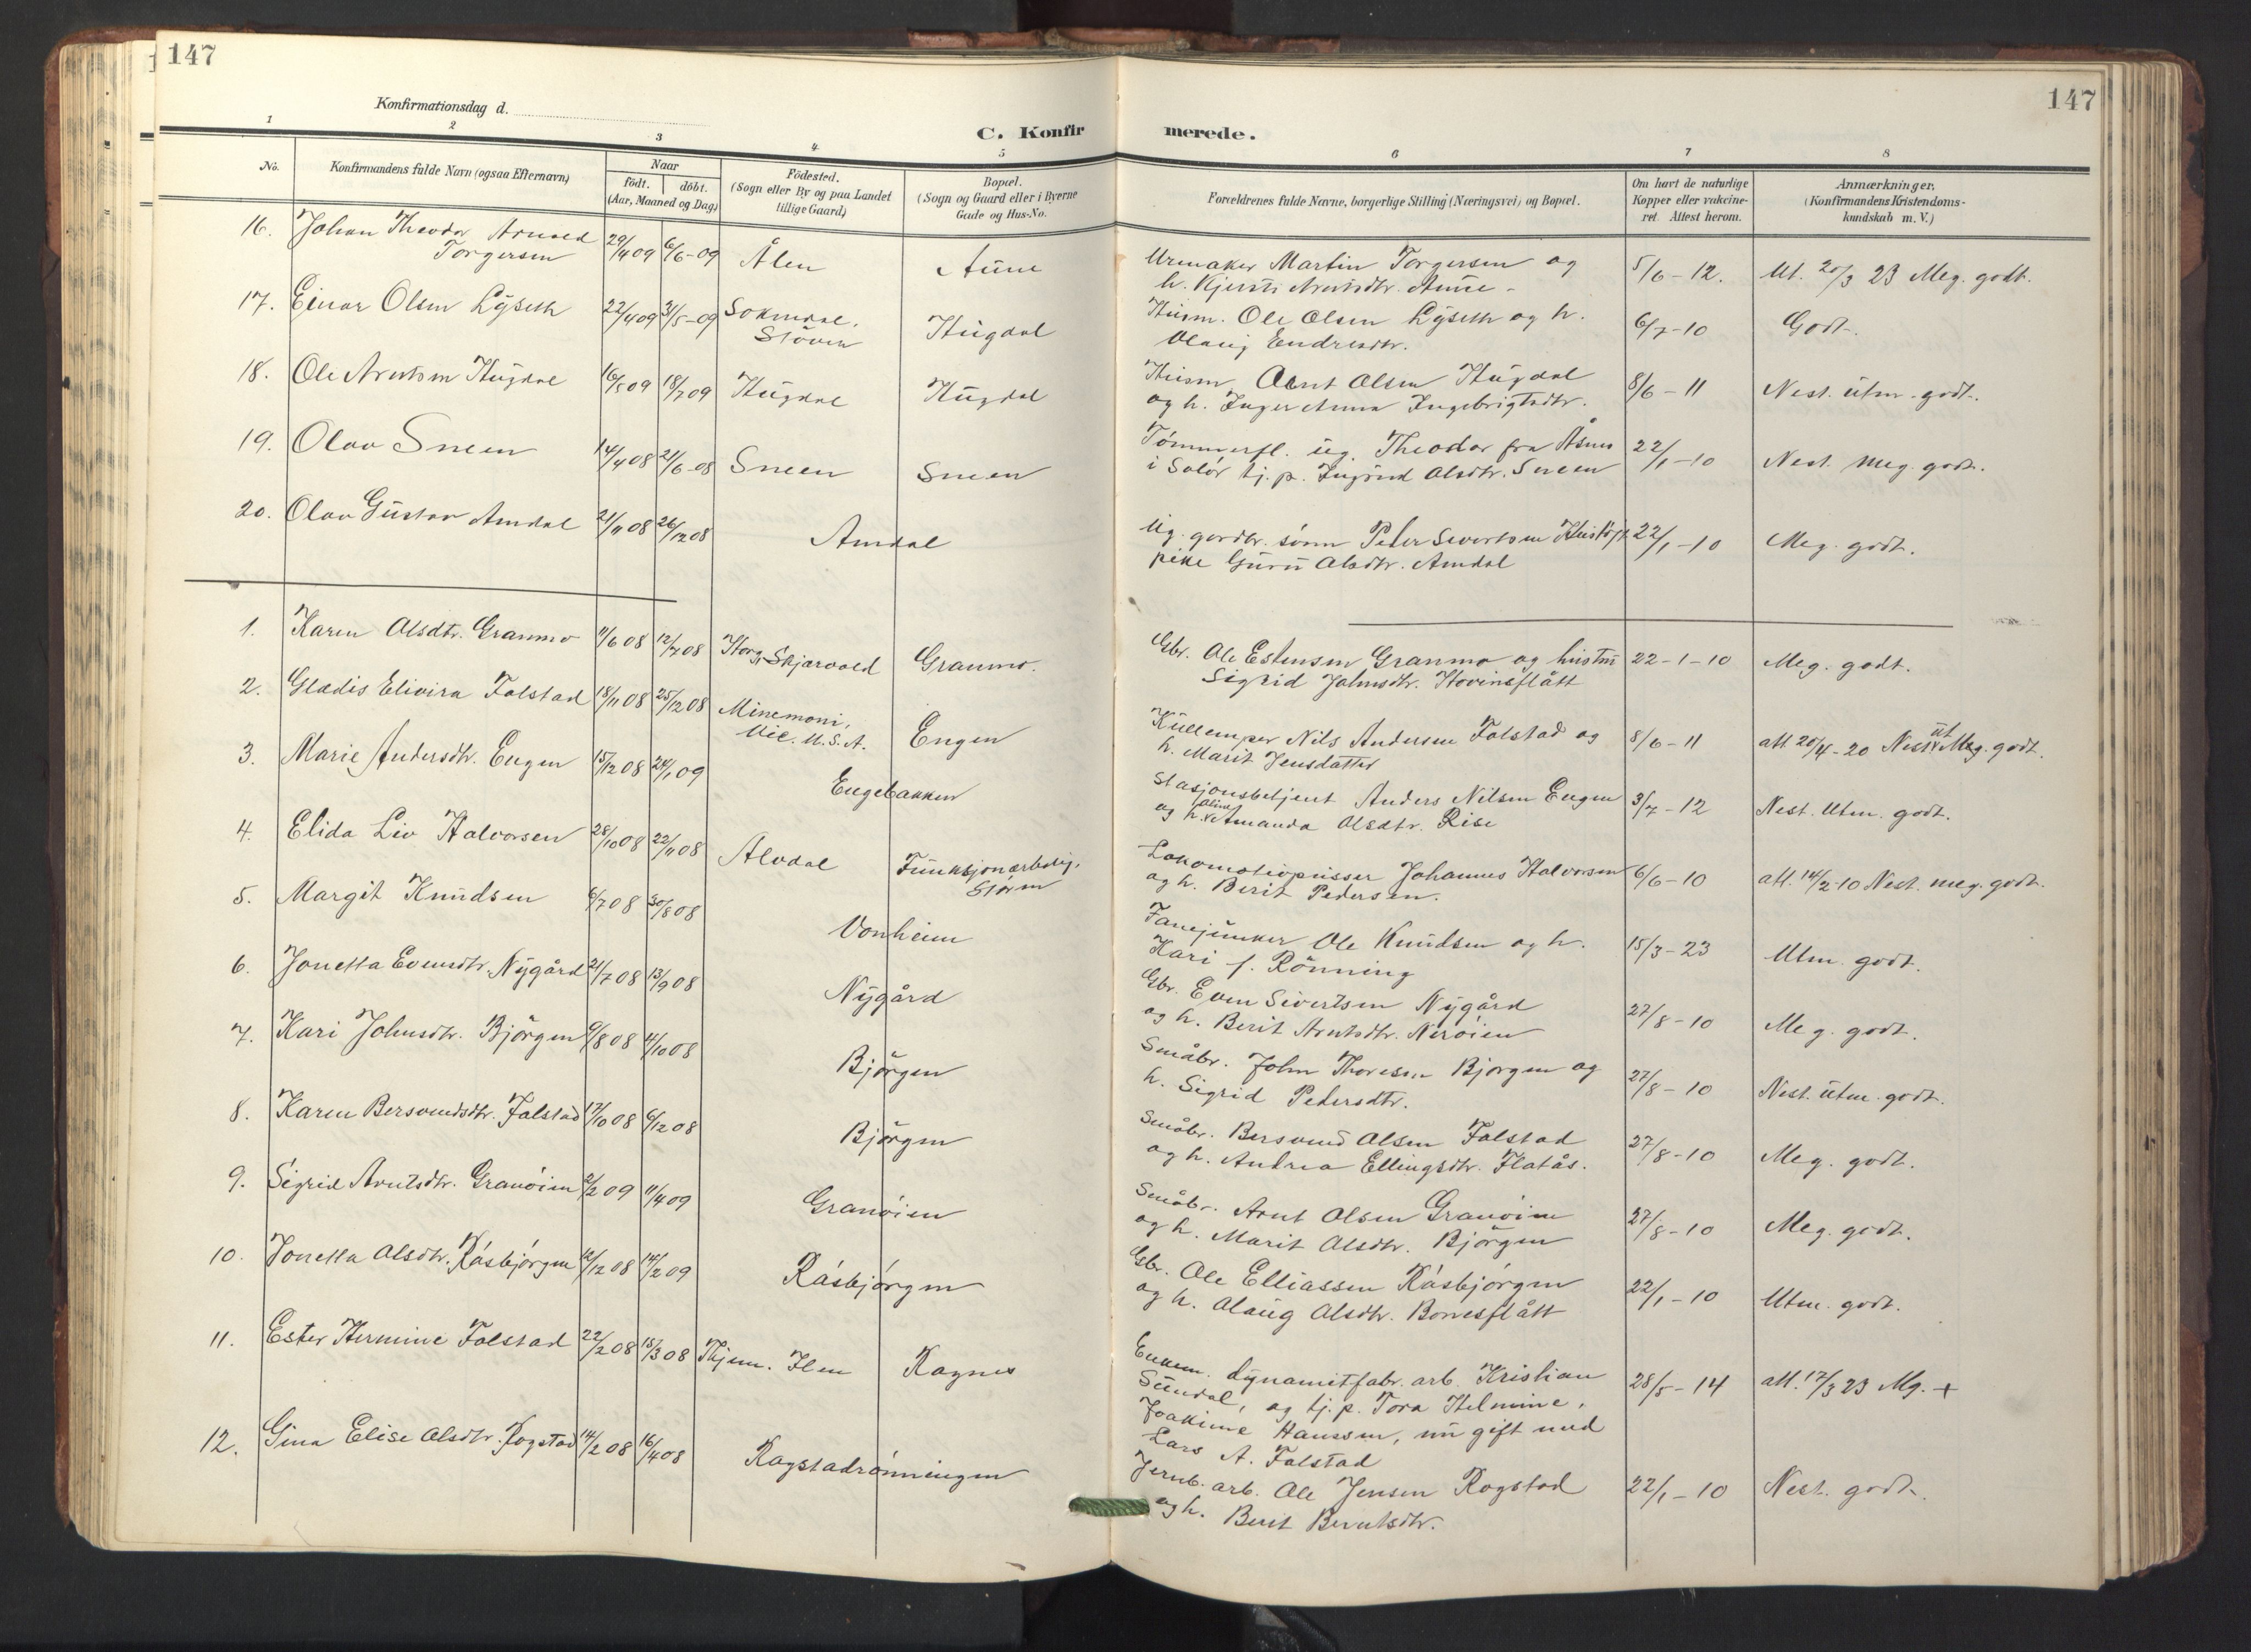 147
147
Konfirmationsdag d.
C. Konfirmerede.
1 2 3 4 5 6 7 8
No.
Konfirmandens fulde Navn (ogsaa Efternavn)
Naar
födt. döbt.
(Aar, Maaned og Dag)
Födested.
(Sogn eller By og paa Landet
tillige Gaard)
Bopæl.
(Sogn og Gaard eller i Byerne
Gade og Hus-No.
Forældrenes fulde Navne, borgerlige Stilling (Næringsvei) og Bopæl.
Om havt de naturlige
Kopper eller vakcine-
ret. Attest herom.
Anmærkninger.
(Konfirmandens Kristendoms-
kundskab m. V.)
16. Johan Theodor Arnold Torgersen 29/4 09 6/6-09 Ålen Aune
Urmaker Martin Torgersen og
h. Kjersti Arntsdtr. Aune - 5/6-12. Ut. 20/3 23 Meg. godt.
17. Einar Olsen Lÿseth 22/4 09 31/5-09 Soknedal, Stören Hügdal
Husm. Ole Olsen Lÿseth og h.
Olaug Endresdtr. 6/7-10 Godt.
18. Ole Arntsen Hügdal 16/5 09 18/7 09 Hügdal Hügdal
Husm. Arnt Olsen Hügdal
og h. Inger Anna Ingebrigtsdtr. 8/6-11 Nest. utm. godt.
19. Olav Sneen 14/4 08 21/6-08 Sneen Sneen
Tømmerfl. ug. Theodor fra Åsnes
i Solør tj. p. Ingrid Olsdtr. Sneen 22/1-10 Nest. meg. godt.
20. Olav Güstav Amdal 21/11 08 26/12 08 Amdal
Ug. gardbr. sønn Peder Sivertsen
pike Gürü Olsdtr. Amdal 22/1-10 Meg. godt.
1. Karen Olsdtr. Granmo 11/6 08 12/7 08 Horg, Skjærvold Granmo.
Gbr. Ole Estensen Granmo og hustrü
Sigrid Johnsdtr. Hovinsflått 22-1-10 Meg. godt.
2. Gladis Elivira Folstad 18/11 08 25/12 08 Minemoni, U.S.A. Engen
Küllemper Nils Andersen Folstad og
h. Marit Jensdatter 8/6-11 att 20/4-20 Nest. ut Meg. godt.
3. Marie Andersdtr. Engen 15/12 08 24/1 09 Engebakken
Stasjonsbetjent Anders Nilsen Engen
og h. Oline Amanda Olsdtr. Rise 3/7-12 Nest. Utm. godt.
4. Elida Liv Halvorsen 28/10 08 22/11 08 Alvdal Funksjonærbolig, Støren
Lokomotivpusser Johannes Halvorsen
og h. Berit Pedersen. 6/6-10 att. 14/2-10 Nest. meg. godt.
5. Margit Knüdsen 6/7 08 30/8 08 Vonheim
Fanejunker Ole Knüdsen og h.
Kari f. Rönning 15/3-23 Utm. godt.
6. Jonetta Evensdtr. Nÿgård 21/7 08 13/9 08 Nÿgård
Gbr. Even Sivertsen Nÿgård
og h. Berit Arntsdtr. Nerøien 27/8-10 Meg. godt.
7. Kari Johnsdtr. Björgen 9/8 08 4/10 08 Björgen
Småbr. John Thoresen Bjørgen og
h. Sigrid Pedersdtr. 27/8-10 Nest. utm. godt.
8. Karen Bersvendsdtr. Folstad 17/10 08 6/12 08 Björgen
Småbr. Bersvend Olsen Folstad
og h. Andrea Ellingsdtr. Flatås. 27/8-10 Meg. godt.
9. Sigrid Arntsdtr. Granøien 2/2 09 11/4 09 Granøien
Småbr. Arnt Olsen Granøien
og h. Marit Olsdtr. Björgen 27/8-10 Meg. godt.
10. Jonetta Olsdtr. Råsbjørgen 12/12 08 14/2 09 Råsbjørgen
Gbr. Ole Elliassen Råsbjørgen
og h. Olaug Olsdtr. Bonesflått 22/1-10 Utm. godt.
11. Ester Hermine Folstad 22/2 08 15/3 08 Thjem. Ilen Ragnes
Enkem. dÿnamitfabr. arb. Kristian
Sundal, og tj. p. Tora Helmine,
Joakime Hanssen, nü gift med
Lars A. Folstad 28/5-14 att. 17/3 23 Mg. +
12. Gina Elise Olsdtr. Rogstad 14/2 08 16/4 08 Rogstadrønningen
Jernb. arb. Ole Jensen Rogstad
og h. Berit Berntsdtr. 22/1-10 Nest. godt.